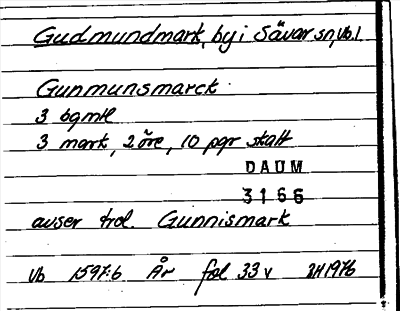 Gudmundmark, by i Sävar sn, Vb.l
Gunmunsmarck.
3 bgmtl
3 mark, 2 öre, 10 pgr skatt
DAUM
3166
avser trol. Gunnismark
Vb 1597:6 År fol 33 v 1976